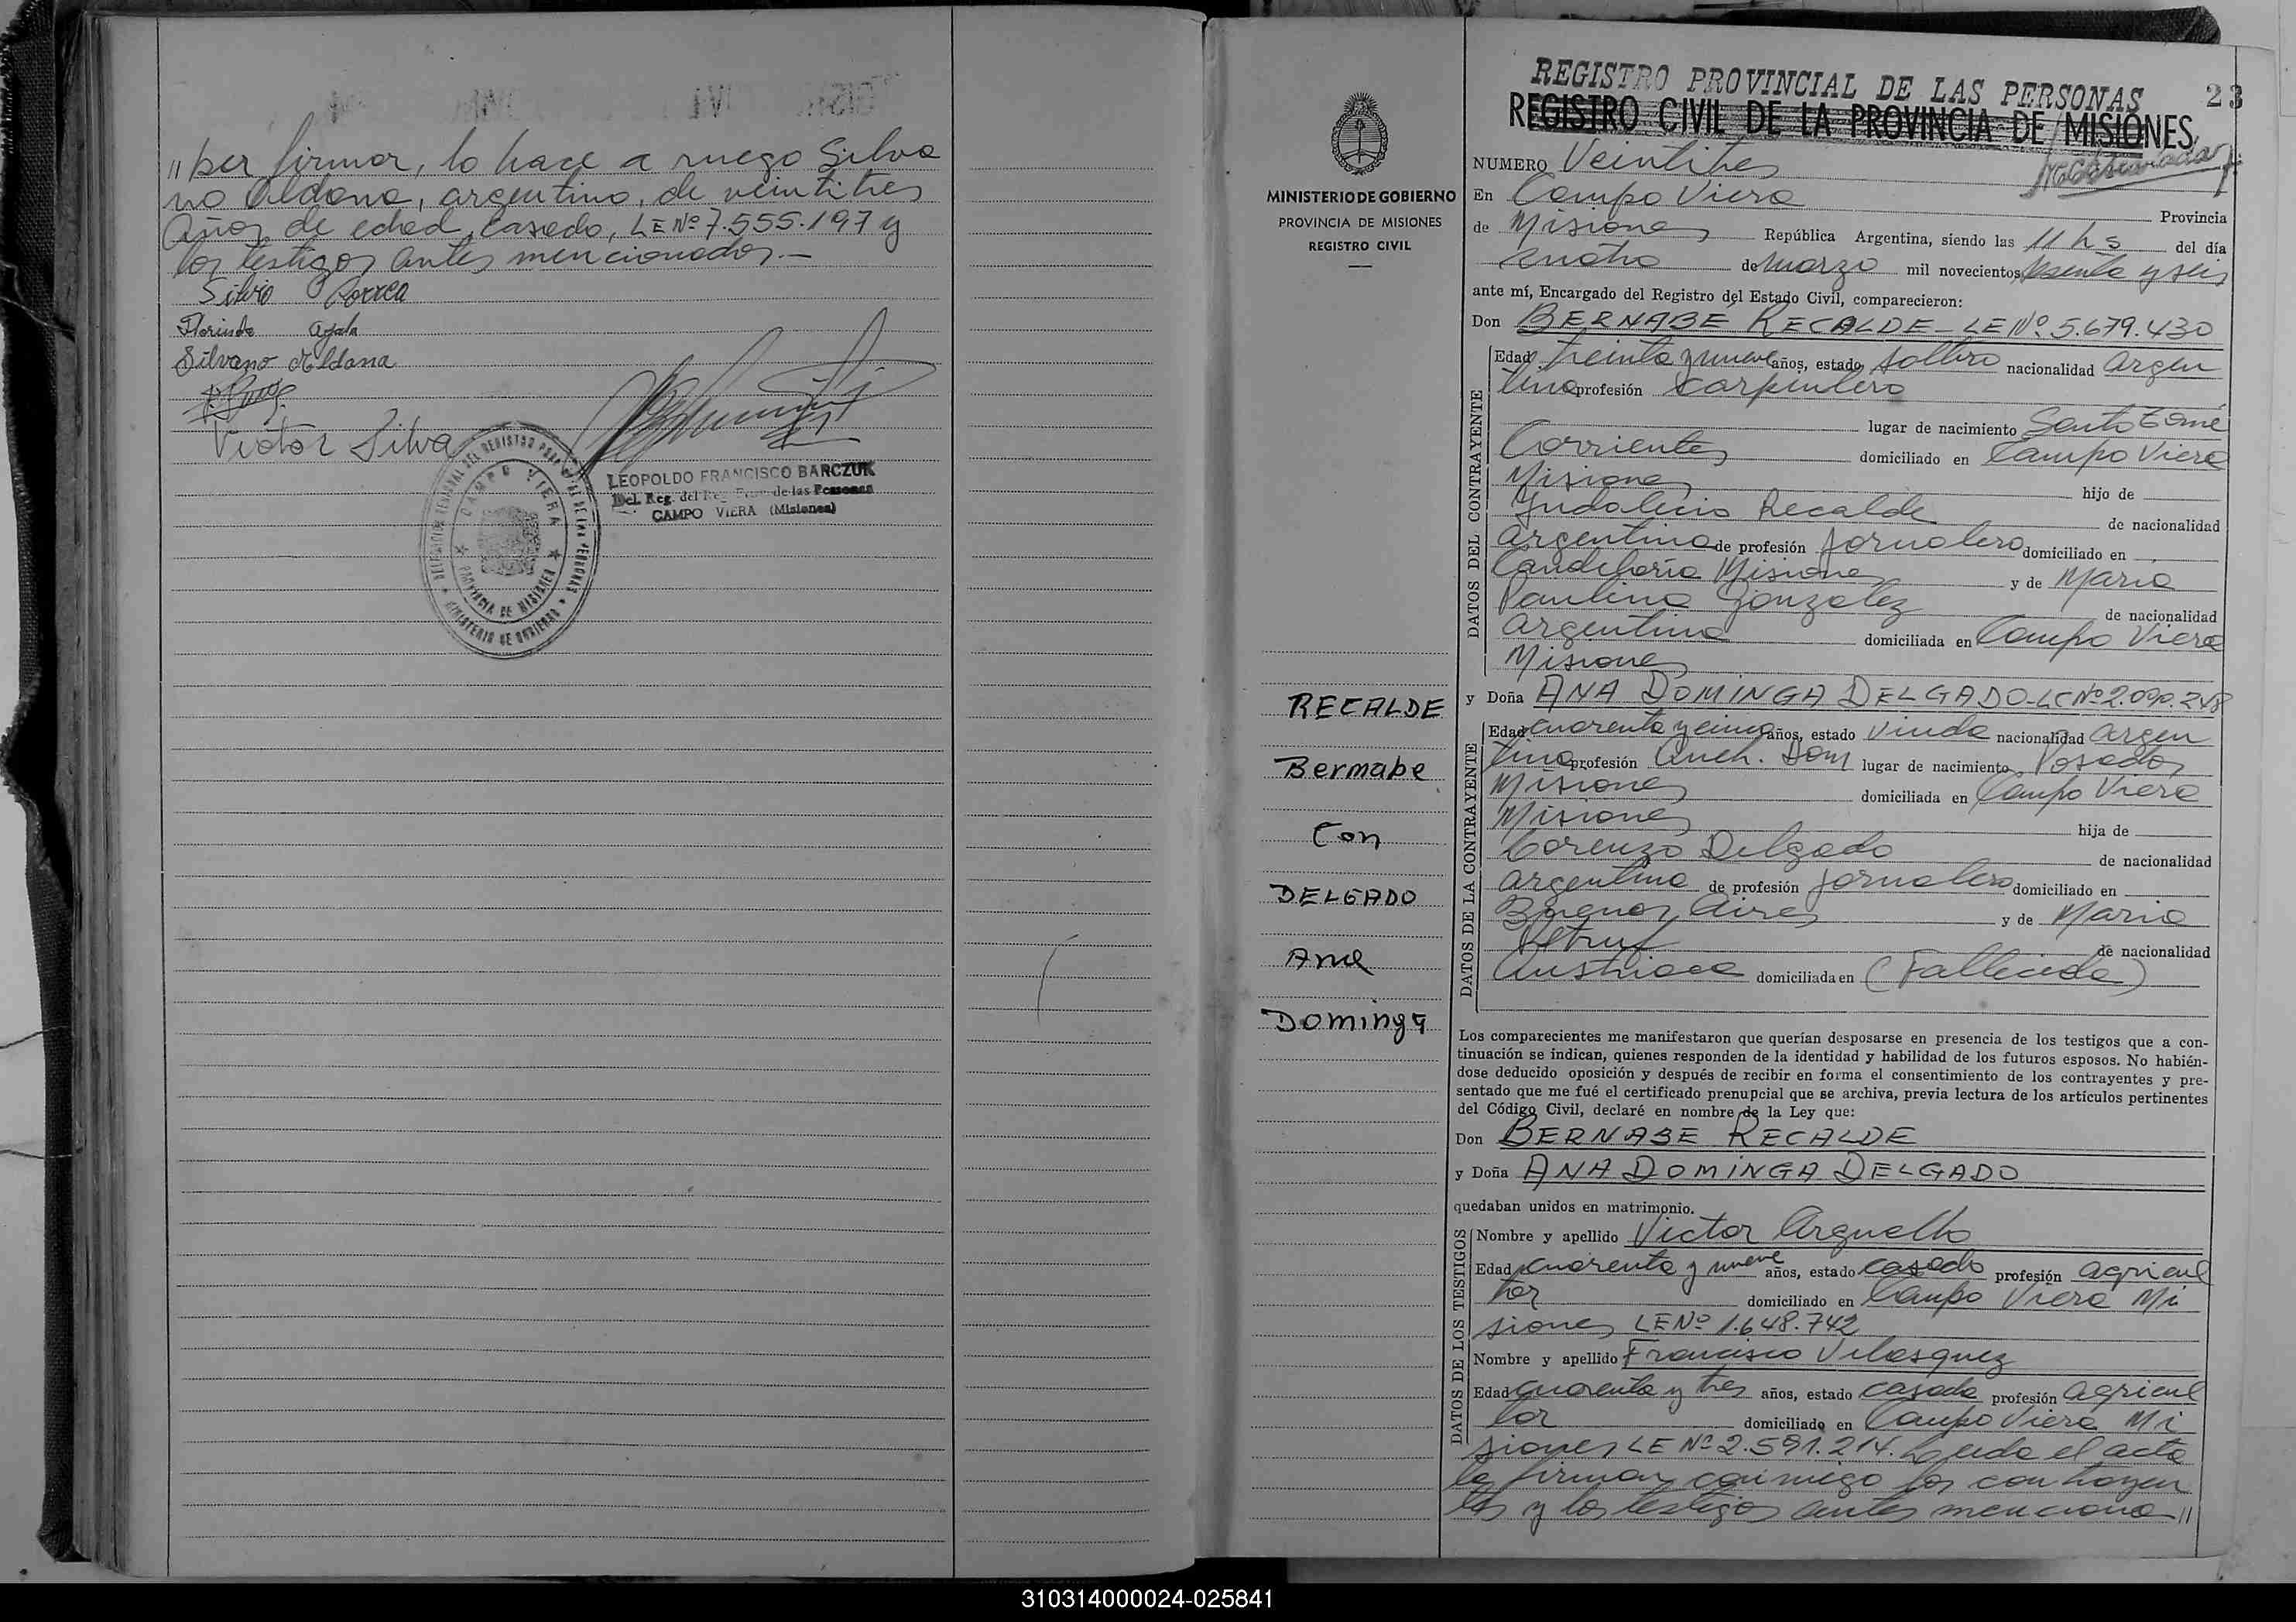 "ber firmar, lo hace a ruego Silva
no Aldana, argentino, de veintitres
años de edad, casado, LE Nº 7.555.197 y
los testigos antes mencionados.—
Silvio Correa
Florinda Ayala
Silvano Aldana
Victor Silva
LEOPOLDO FRANCISCO BARCZUK
Del. Reg. del de las Personas
CAMPO VIERA (Misiones)
CAMPO VIERA
PROVINCIA DE MISIONES
MINISTERIO DE GOBIERNO
REGISTRO PROVINCIAL DE LAS PERSONAS
23
REGISTRO CIVIL DE LA PROVINCIA DE MISIONES
MINISTERIO DE GOBIERNO
PROVINCIA DE MISIONES
REGISTRO CIVIL
NUMERO Veintitres
En Campo Viera Provincia
de Misiones República Argentina, siendo las 11 hs del día
cuatro de marzo mil novecientos sesenta y seis
ante mí, Encargado del Registro del Estado Civil, comparecieron:
Don BERNABE RECALDE - LE Nº 5.679.430
DATOS DEL CONTRAYENTE
Edad treinta y nueve años, estado soltero nacionalidad argen
tina profesión carpintero
lugar de nacimiento Santo Tomé
Corrientes domiciliado en Campo Viera
Misiones hijo de
Indalecio Recalde de nacionalidad
argentina de profesión jornalero domiciliado en
Candelaria Misiones y de Maria
Paulina Gonzalez de nacionalidad
argentina domiciliada en Campo Viera
Misiones
y Doña ANA DOMINGA DELGADO - LC Nº 2.090.248
DATOS DE LA CONTRAYENTE
Edad cuarenta y cinco años, estado viuda nacionalidad argen
tina profesión Queh. Dom lugar de nacimiento Posadas
Misiones domiciliada en Campo Viera
Misiones hija de
Lorenzo Delgado de nacionalidad
argentina de profesión jornalero domiciliado en
Buenos Aires y de Maria
de nacionalidad
Austriaca domiciliada en (Fallecida)
RECALDE
Bernabe
Con
DELGADO
Ana
Dominga
Los comparecientes me manifestaron que querían desposarse en presencia de los testigos que a con-
tinuación se indican, quienes responden de la identidad y habilidad de los futuros esposos. No habién-
dose deducido oposición y después de recibir en forma el consentimiento de los contrayentes y pre-
sentado que me fué el certificado prenupcial que se archiva, previa lectura de los artículos pertinentes
del Código Civil, declaré en nombre de la Ley que:
Don BERNABE RECALDE
y Doña ANA DOMINGA DELGADO
quedaban unidos en matrimonio.
DATOS DE LOS TESTIGOS
Nombre y apellido Victor Arguello
Edad cuarenta y nueve años, estado casado profesión agricul
tor domiciliado en Campo Viera Mi
siones LE Nº 1.648.742
Nombre y apellido Francisco Velasquez
Edad cuarenta y tres años, estado casado profesión agricul
tor domiciliado en Campo Viera Mi
siones LE Nº 2.591.214. Leida el acta
la firman conmigo los contrayen
tes y los testigos antes menciona "
310314000024-025841